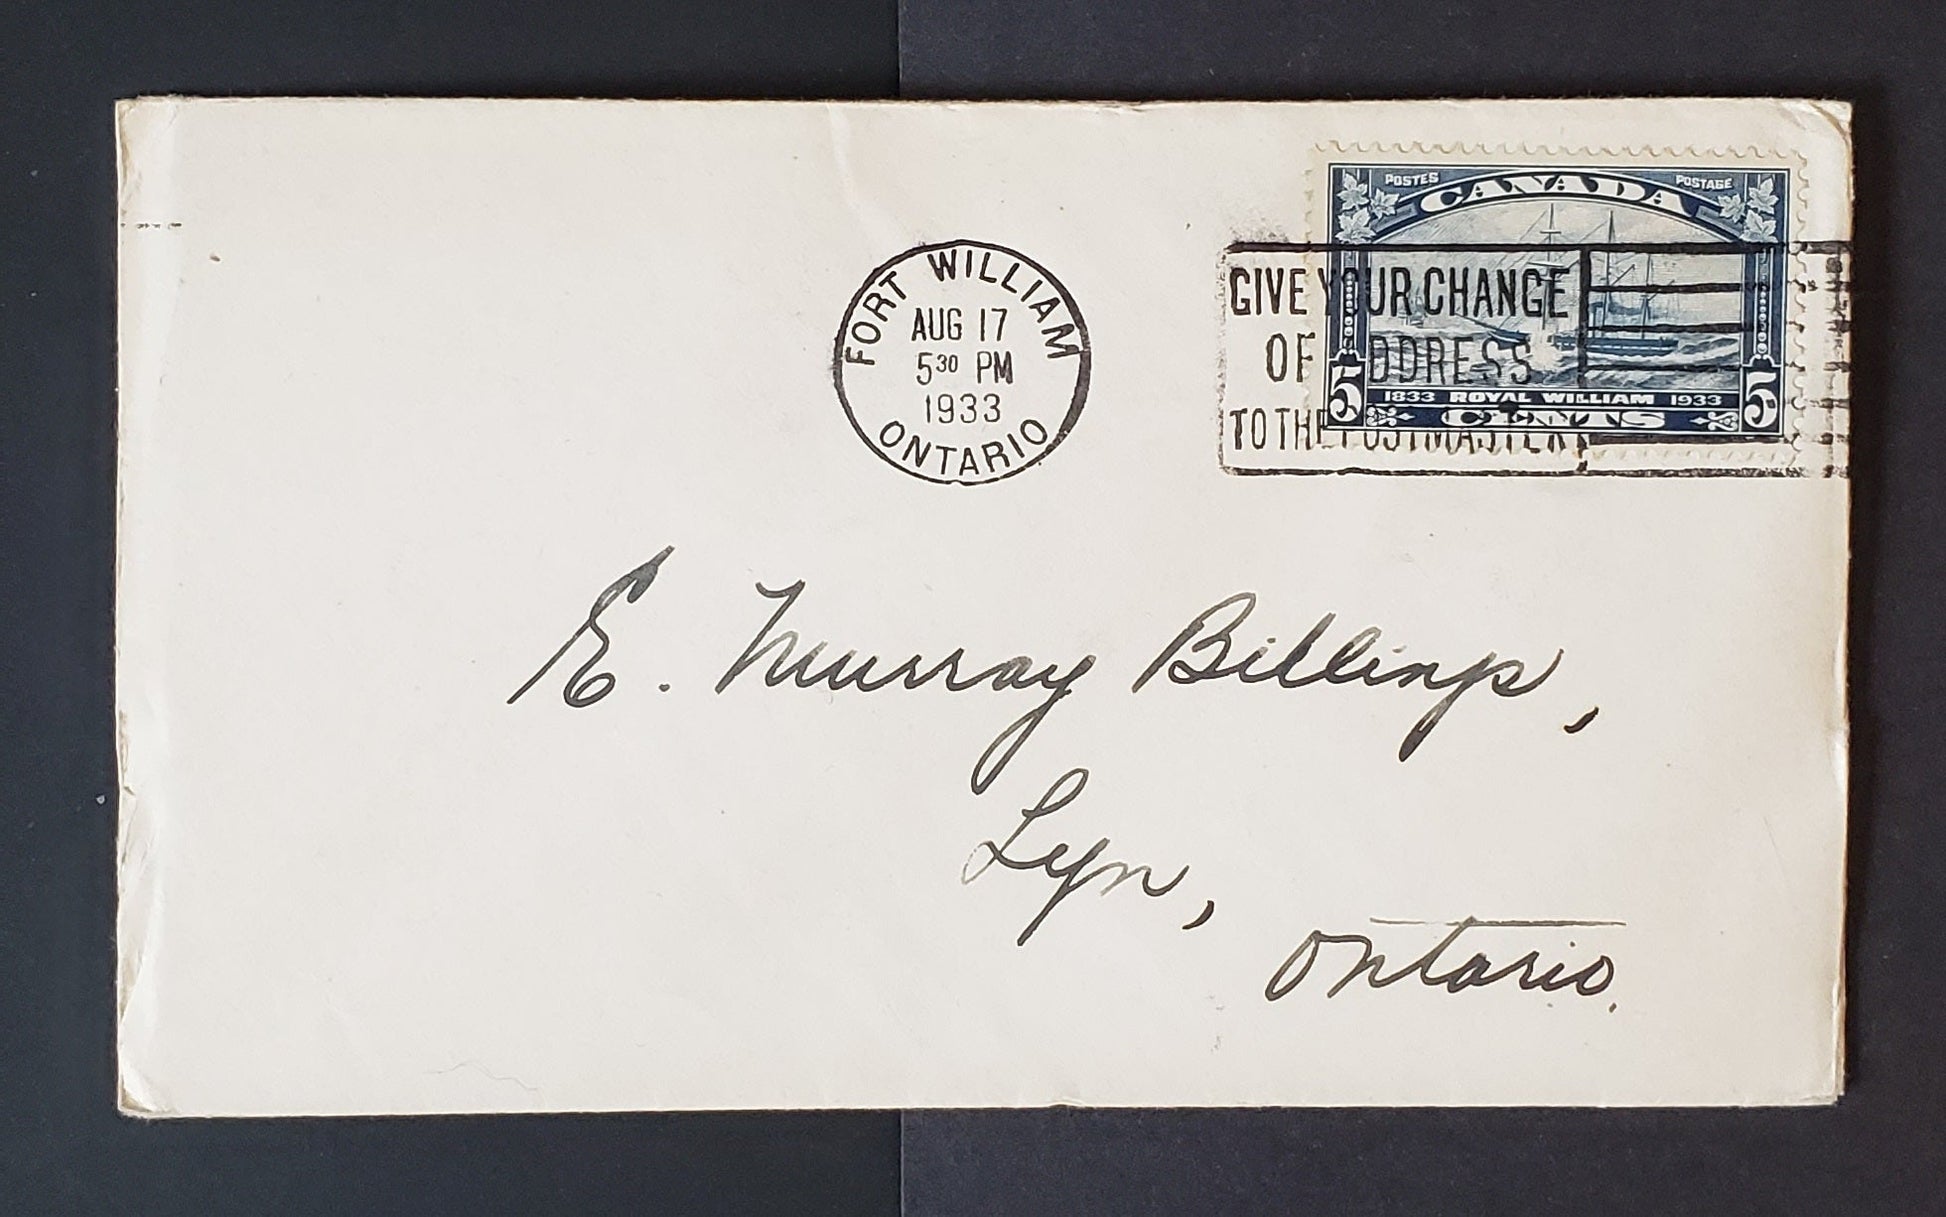 POSTES CANADA POSTAGE
5 1833 ROYAL WILLIAM 1933 5
CENTS
FORT WILLIAM
AUG 17
5 30 PM
1933
ONTARIO
GIVE YOUR CHANGE
OF ADDRESS
TO THE POSTMASTER
E. Murray Billings,
Lyn,
Ontario.